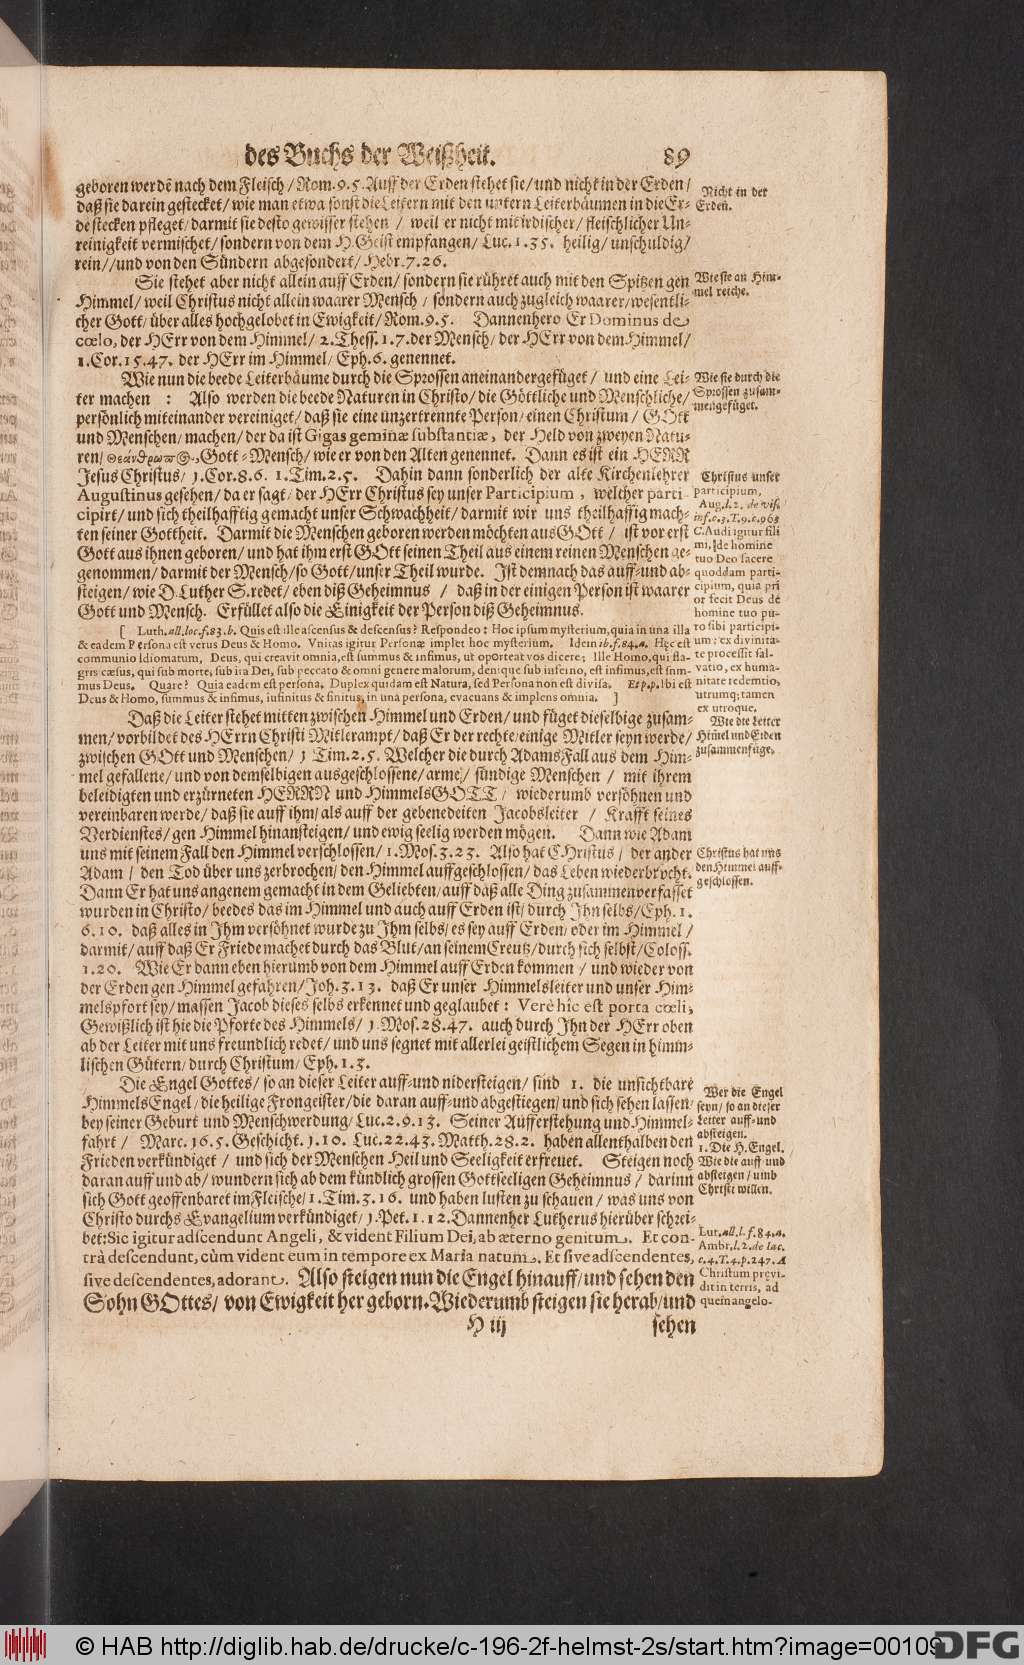 des Buchs der Weißheit. 89
geboren werdē nach dem Fleisch / Rom. 9. 5. Auff der Erden stehet sie / und nicht in der Erden /
daß sie darein gestecket / wie man etwa sonst die Leitern mit den untern Leiterbäumen in die Er-
de stecken pfleget / darmit sie desto gewisser stehen / weil er nicht mit irdischer / fleischlicher Un-
reinigkeit vermischet / sondern von dem H. Geist empfangen / Luc. 1. 35. heilig / unschuldig /
rein // und von den Sündern abgesondert / Hebr. 7. 26.
Nicht in der
Erden.
Sie stehet aber nicht allein auff Erden / sondern sie rühret auch mit den Spitzen gen
Himmel / weil Christus nicht allein waarer Mensch / sondern auch zugleich waarer / wesentli-
cher Gott / über alles hochgelobet in Ewigkeit / Rom. 9. 5. Dannenhero Er Dominus de
cœlo, der HErr von dem Himmel / 2. Thess. 1. 7. der Mensch / der HErr von dem Himmel /
1. Cor. 15. 47. der HErr im Himmel / Eph. 6. genennet.
Wie sie an Him-
mel reiche.
Wie nun die beede Leiterbäume durch die Sprossen aneinander gefüget / und eine Lei-
ter machen : Also werden die beede Naturen in Christo / die Göttliche und Menschliche /
persönlich miteinander vereiniget / daß sie eine unzertrennte Person / einen Christum / GOtt
und Menschen / machen / der da ist Gigas geminæ substantiæ, der Held von zweyen Natu-
ren / Θεάνθρωπος, Gott-Mensch / wie er von den Alten genennet. Dann es ist ein HERR
Jesus Christus / 1. Cor. 8. 6. 1. Tim. 2. 5. Dahin dann sonderlich der alte Kirchenlehrer
Augustinus gesehen / da er sagt / der HErr Christus sey unser Participium, welcher parti-
cipirt / und sich theilhafftig gemacht unser Schwachheit / darmit wir uns theilhaffig mach-
ten seiner Gottheit. Darmit die Menschen geboren werden möchten aus GOtt / ist vor erst
Gott aus ihnen geboren / und hat ihm erst GOtt seinen Theil aus einem reinen Menschen ge-
genommen / darmit der Mensch / so Gott / unser Theil wurde. Ist demnach das auff- und ab-
steigen / wie D. Luther S. redet / eben diß Geheimnus / daß in der einigen Person ist waarer
Gott und Mensch. Erfüllet also die Einigkeit der Person diß Geheimnus.
Wie sie durch die
Sprossen zusam-
mengefüget.
Christus unser
participium,
Aug. l. 2. de vis.
inf. c. 3. T. 9. c. 963
C. Audi igitur fili
mi, de homine
tuo Deo facere
quoddam parti-
cipium, quia pri
or fecit Deus de
homine tuo pu-
ro sibi participi-
um : ex divinita-
te processit sal-
vatio, ex huma-
nitate redemtio,
utrumq; tamen
ex utroque.
[ Luth. all. loc. f. 83. b. Quis est ille ascensus & descensus? Respondeo: Hoc ipsum mysterium, quia in una illa
& eadem Persona est verus Deus & Homo. Vnitas igitur Personæ implet hoc mysterium. Idem ib. f. 84. a. Hęc est
communio Idiomatum, Deus, qui creavit omnia, est summus & infimus, ut oporteat vos dicere; Ille Homo, qui fla-
gris cæsus, qui sub morte, sub ira Dei, sub peccato & omni genere malorum, denique sub inferno, est infimus, est sum-
mus Deus. Quare? Quia eadem est persona. Duplex quidam est Natura, sed Persona non est divisa. Et p. p. Ibi est
Deus & Homo, summus & infimus, infinitus & finitus, in una persona, evacuans & implens omnia. ]
Daß die Leiter stehet mitten zwischen Himmel und Erden / und füget dieselbige zusam-
men / vorbildet des HErrn Christi Mitlerampt / daß Er der rechte / einige Mitler seyn werde /
zwischen GOtt und Menschen / 1 Tim. 2. 5. Welcher die durch Adams Fall aus dem Him-
mel gefallene / und von demselbigen ausgeschlossene / arme / sündige Menschen / mit ihrem
beleidigten und erzürneten HERRN und HimmelsGOTT / wiederumb versöhnen und
vereinbaren werde / daß sie auff ihm / als auff der gebenedeiten Jacobsleiter / Krafft seines
Verdienstes / gen Himmel hinansteigen / und ewig seelig werden mögen. Dann wie Adam
uns mit seinem Fall den Himmel verschlossen / 1. Mos. 3. 23. Also hat CHristus / der ander
Adam / den Tod über uns zerbrochen / den Himmel auffgeschlossen / das Leben wiederbrycht.
Dann Er hat uns angenem gemacht in dem Geliebten / auff daß alle Ding zusammen verfasset
wurden in Christo / beedes das im Himmel und auch auff Erden ist / durch Jhn selbs / Eph. 1.
6. 10. daß alles in Jhm versöhnet wurde zu Jhm selbs / es sey auff Erden / oder im Himmel /
darmit / auff daß Er Friede machet durch das Blut / an seinem Creutz / durch sich selbst / Coloss.
1. 20. Wie Er dann eben hierumb von dem Himmel auff Erden kommen / und wieder von
der Erden gen Himmel gefahren / Joh. 3. 13. daß Er unser Himmelsleiter und unser Him-
melspfort sey / massen Jacob dieses selbs erkennet und geglaubet : Verè hîc est porta cœli,
Gewißlich ist hie die Pforte des Himmels / 1. Mos. 28. 47. auch durch Jhn der HErr oben
ab der Leiter mit uns freundlich redet / und uns segnet mit allerlei geistlichem Segen in himm-
lischen Gütern / durch Christum / Eph. 1. 3.
Wie die Leiter
Him̃el und Erden
zusammenfüge.
Christus hat uns
den Himmel auff-
geschlossen.
Die Engel Gottes / so an dieser Leiter auff- und nidersteigen / sind 1. die unsichtbare
HimmelsEngel / die heilige Frongeister / die daran auff- und abgestiegen / und sich sehen lassen /
bey seiner Geburt und Menschwerdung / Luc. 2. 9. 13. Seiner Aufferstehung und Himmel-
fahrt / Marc. 16. 5. Geschicht. 1. 10. Luc. 22. 43. Matth. 28. 2. haben allenthalben den
Frieden verkündiget / und sich der Menschen Heil und Seeligkeit erfreuet. Steigen noch
daran auff und ab / wundern sich ab dem kündlich grossen Gottseeligen Geheimnus / darinn
sich Gott geoffenbaret im Fleische / 1. Tim. 3. 16. und haben lusten zu schauen / was uns von
Christo durchs Evangelium verkündiget / 1. Pet. 1. 12. Dannenher Lutherus hierüber schrei-
bet: Sic igitur adscendunt Angeli, & vident Filium Dei, ab æterno genitum. Et con-
trà descendunt, cùm vident eum in tempore ex Maria natum. Et sive adscendentes,
sive descendentes, adorant. Also steigen nun die Engel hinauff / und sehen den
Sohn GOttes / von Ewigkeit her geborn. Wiederumb steigen sie herab / und
Wer die Engel
seyn / so an dieser
Leiter auff- und
absteigen.
1. Die H. Engel.
Wie die auff- und
absteigen / umb
Christi willen.
Lut. all. l. f. 84. a.
Ambr. l. 2. de Iac.
c. 4. T. 4. p. 247. A
Christum prævi-
dit in terris, ad
quem angelo-
H iij sehen
© HAB http://diglib.hab.de/drucke/c-196-2f-helmst-2s/start.htm?image=00109
DFG